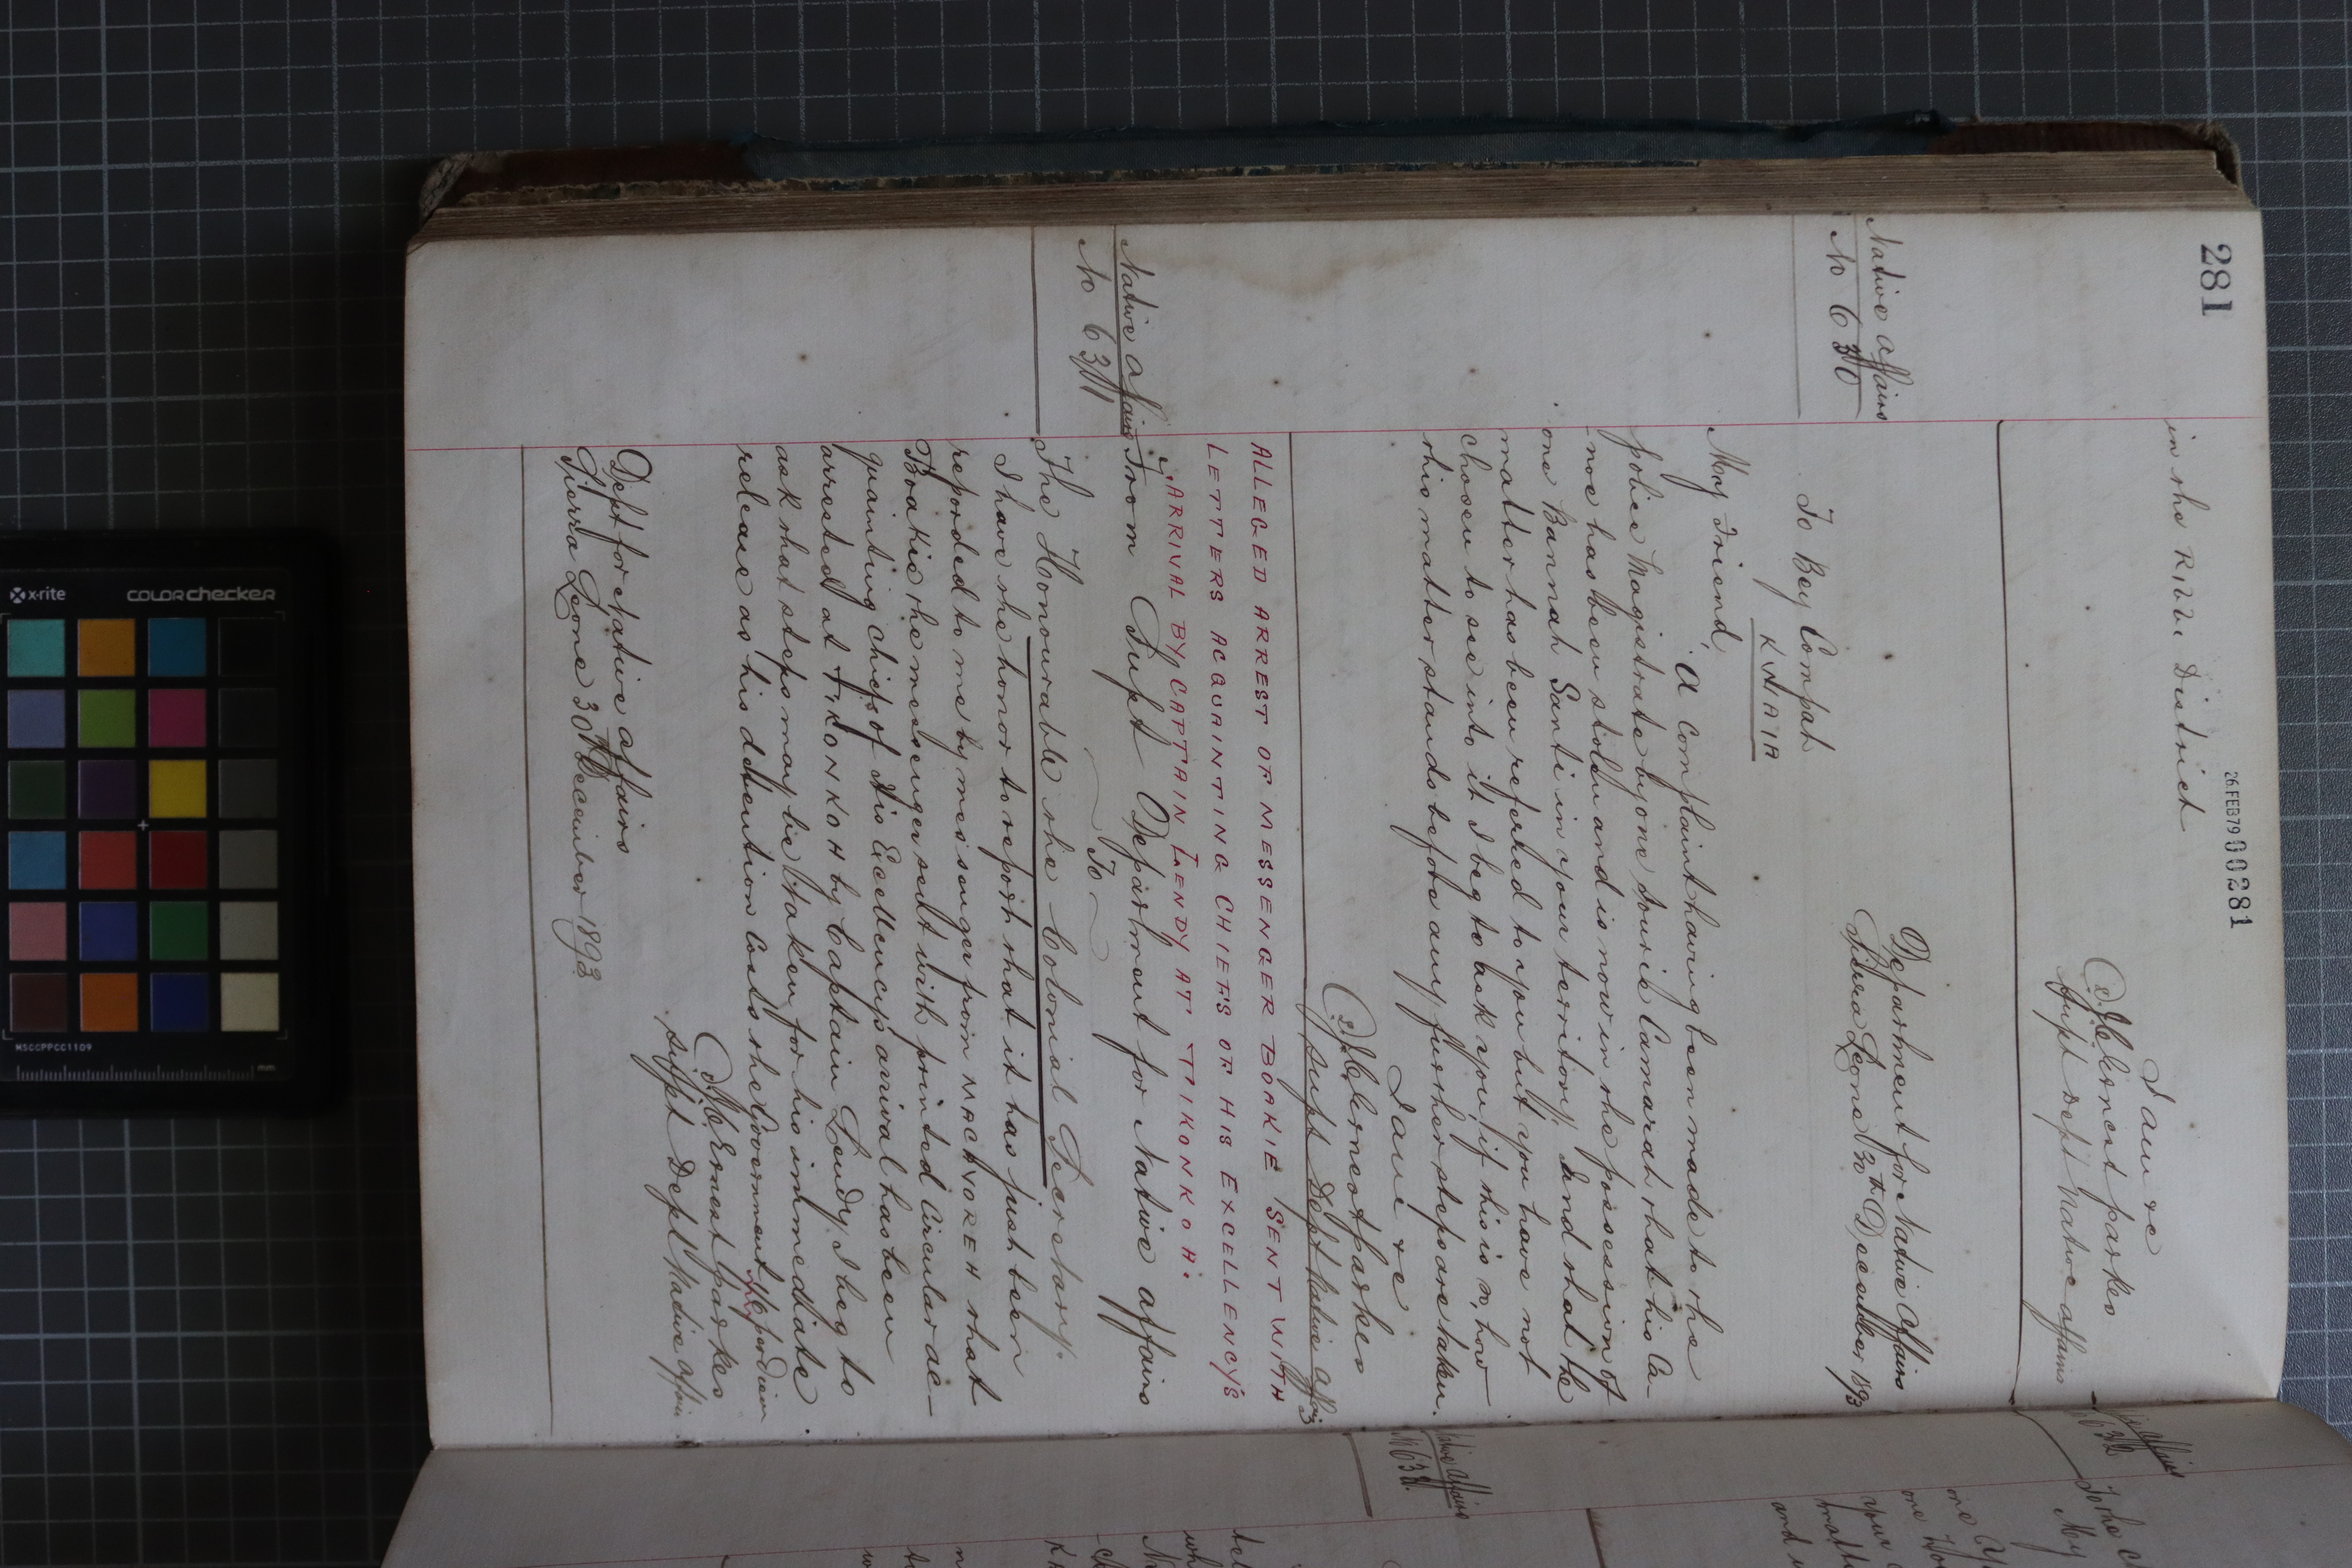 281
26.FEB79 000281
in the Ribbi District
I am &c
J C Ernest Parkes
Supt Dept Native Affairs
Native Affairs
No 630
Department for Native Affairs
Sierra Leone 30th December 1893
To Bey Compah
KWAIA
My Friend,
A complaint having been made to the
police Magistrate by one Sourie Camarah that his Ca-
noe has been stolen and is now in the possession of
one Bannah Santi in your territory, and that the
matter has been referred to you but you have not
chosen to see into it I beg to ask you if this is so, how
this matter stands before any further steps are taken.
I am &c
J C Ernest Parkes
Supt Dept Native Affairs
ALLEGED ARREST OF MESSENGER BOAKIE SENT WITH
LETTERS ACQUAINTING CHIEFS OF HIS EXCELLENCY'S
ARRIVAL BY CAPTAIN LENDY AT TIKONKOH.
Native Affairs
No 631
From Supt Department for Native Affairs
To
The Honourable the Colonial Secretary.
I have the honor to report that it has just been
reported to me by messenger from MACAVOREH that
Boakie the messenger sent with printed circular ac-
quainting Chiefs of His Excellency's arrival has been
arrested at TIKONKOH by Captain Lendy. I beg to
ask that steps may be taken for his immediate
release as his detention costs the Government 1/6 per diem
J C Ernest Parkes
Supt Dept Native Affairs
Dept for Native Affairs
Sierra Leone 30th December 1893
Native Affairs
x-rite
colorchecker
MSCCPPCC1109
mm